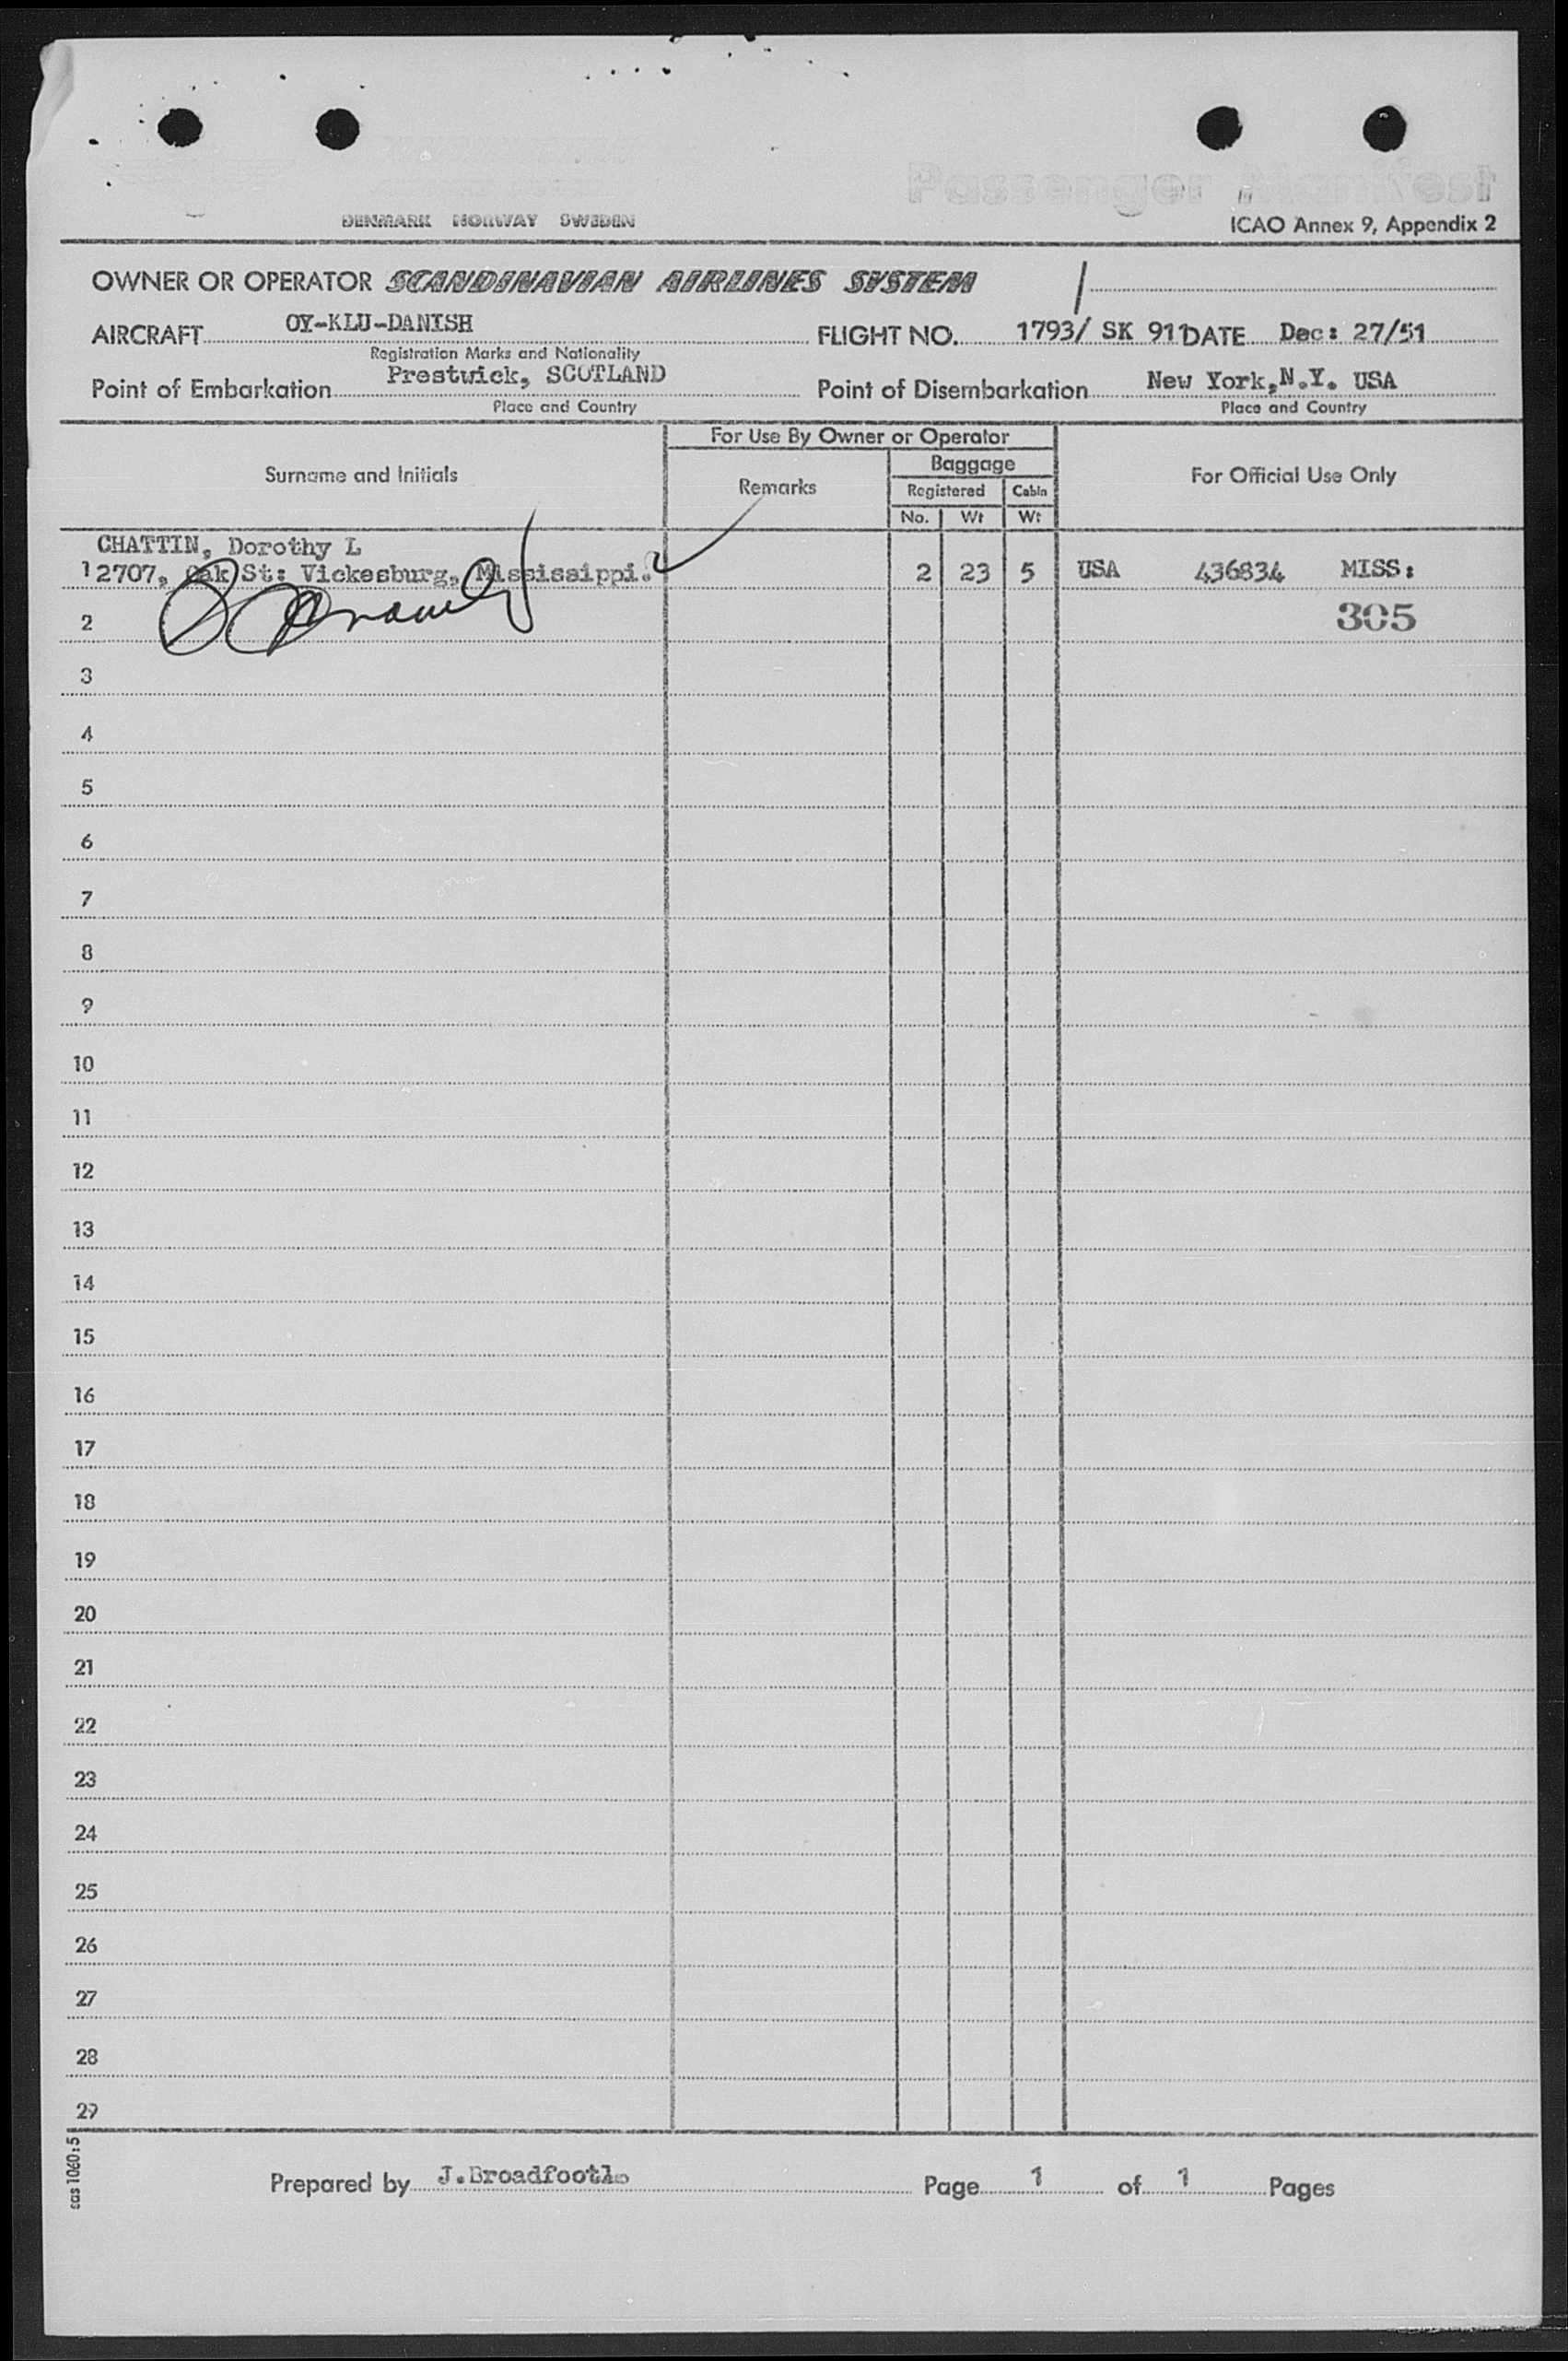 Passenger Manifest
DENMARK NORWAY SWEDEN
ICAO Annex 9, Appendix 2
OWNER OR OPERATOR SCANDINAVIAN AIRLINES SYSTEM
AIRCRAFT OY-KLU-DANISH FLIGHT NO. 1793/ SK 911 DATE Dec: 27/51
Registration Marks and Nationality
Point of Embarkation Prestwick, SCOTLAND Point of Disembarkation New York,N.Y. USA
Place and Country Place and Country
For Use By Owner or Operator
Surname and Initials Remarks Baggage For Official Use Only
Registered Cabin
No. Wt Wt
CHATTIN, Dorothy L
1 2707, Oak St: Vickesburg, Mississippi. 2 23 5 USA 436834 MISS:
2 305
3
4
5
6
7
8
9
10
11
12
13
14
15
16
17
18
19
20
21
22
23
24
25
26
27
28
29
sas 1060:5
Prepared by J.Broadfoot Page 1 of 1 Pages